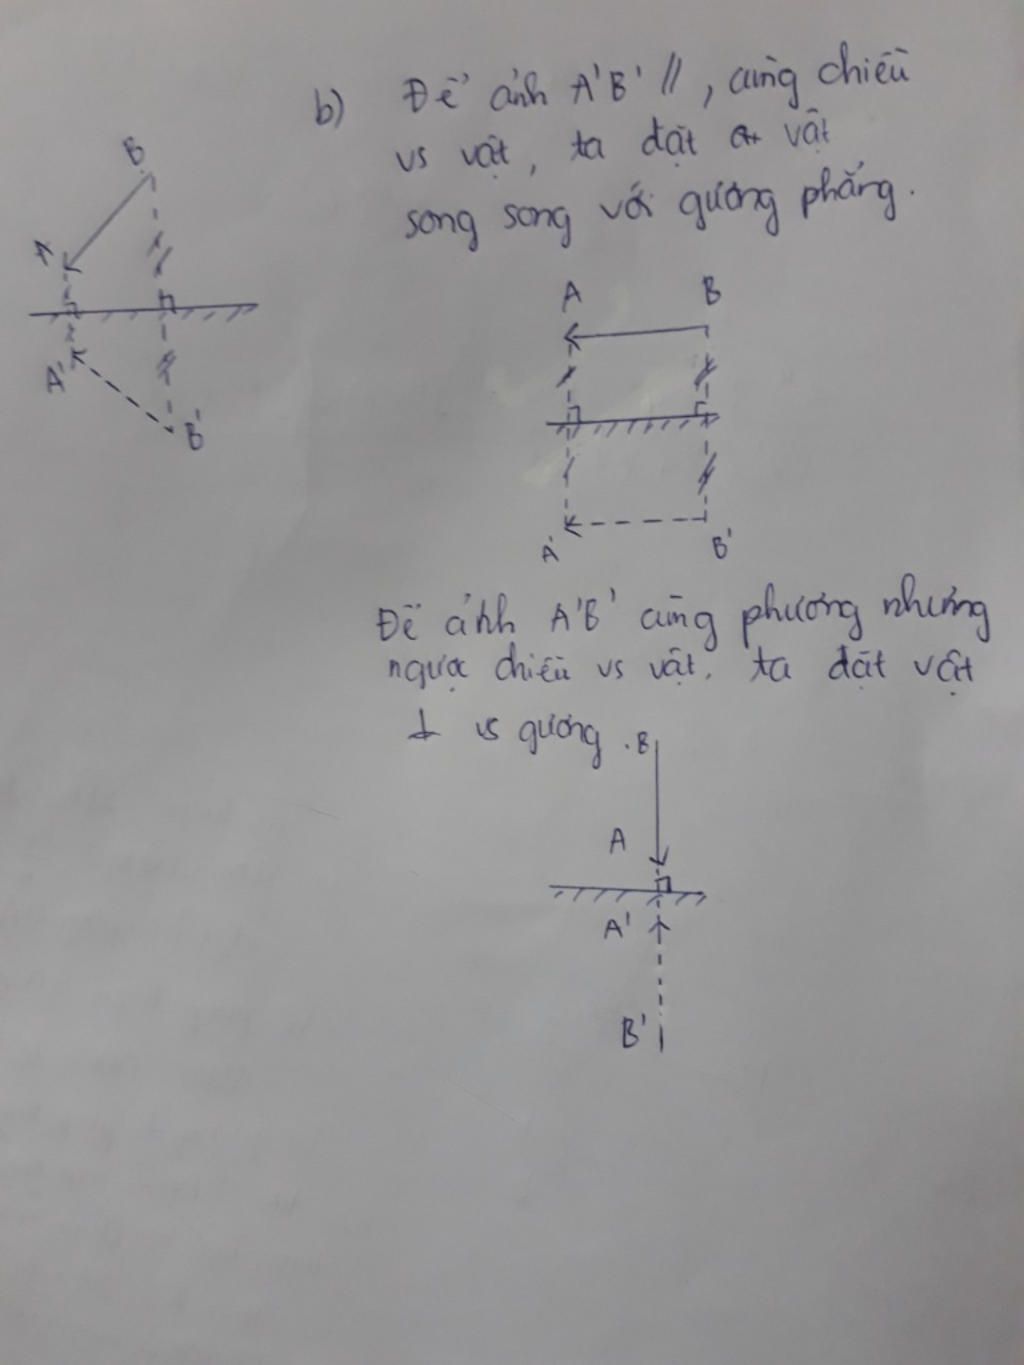 b) Để ảnh A'B' //, cùng chiều
vs vật, ta đặt vật
song song với gương phẳng.
B
A
A'
B'
A B
A' B'
Để ảnh A'B' cùng phương nhưng
ngược chiều vs vật, ta đặt vật
⊥ vs gương.
B
A
A'
B'